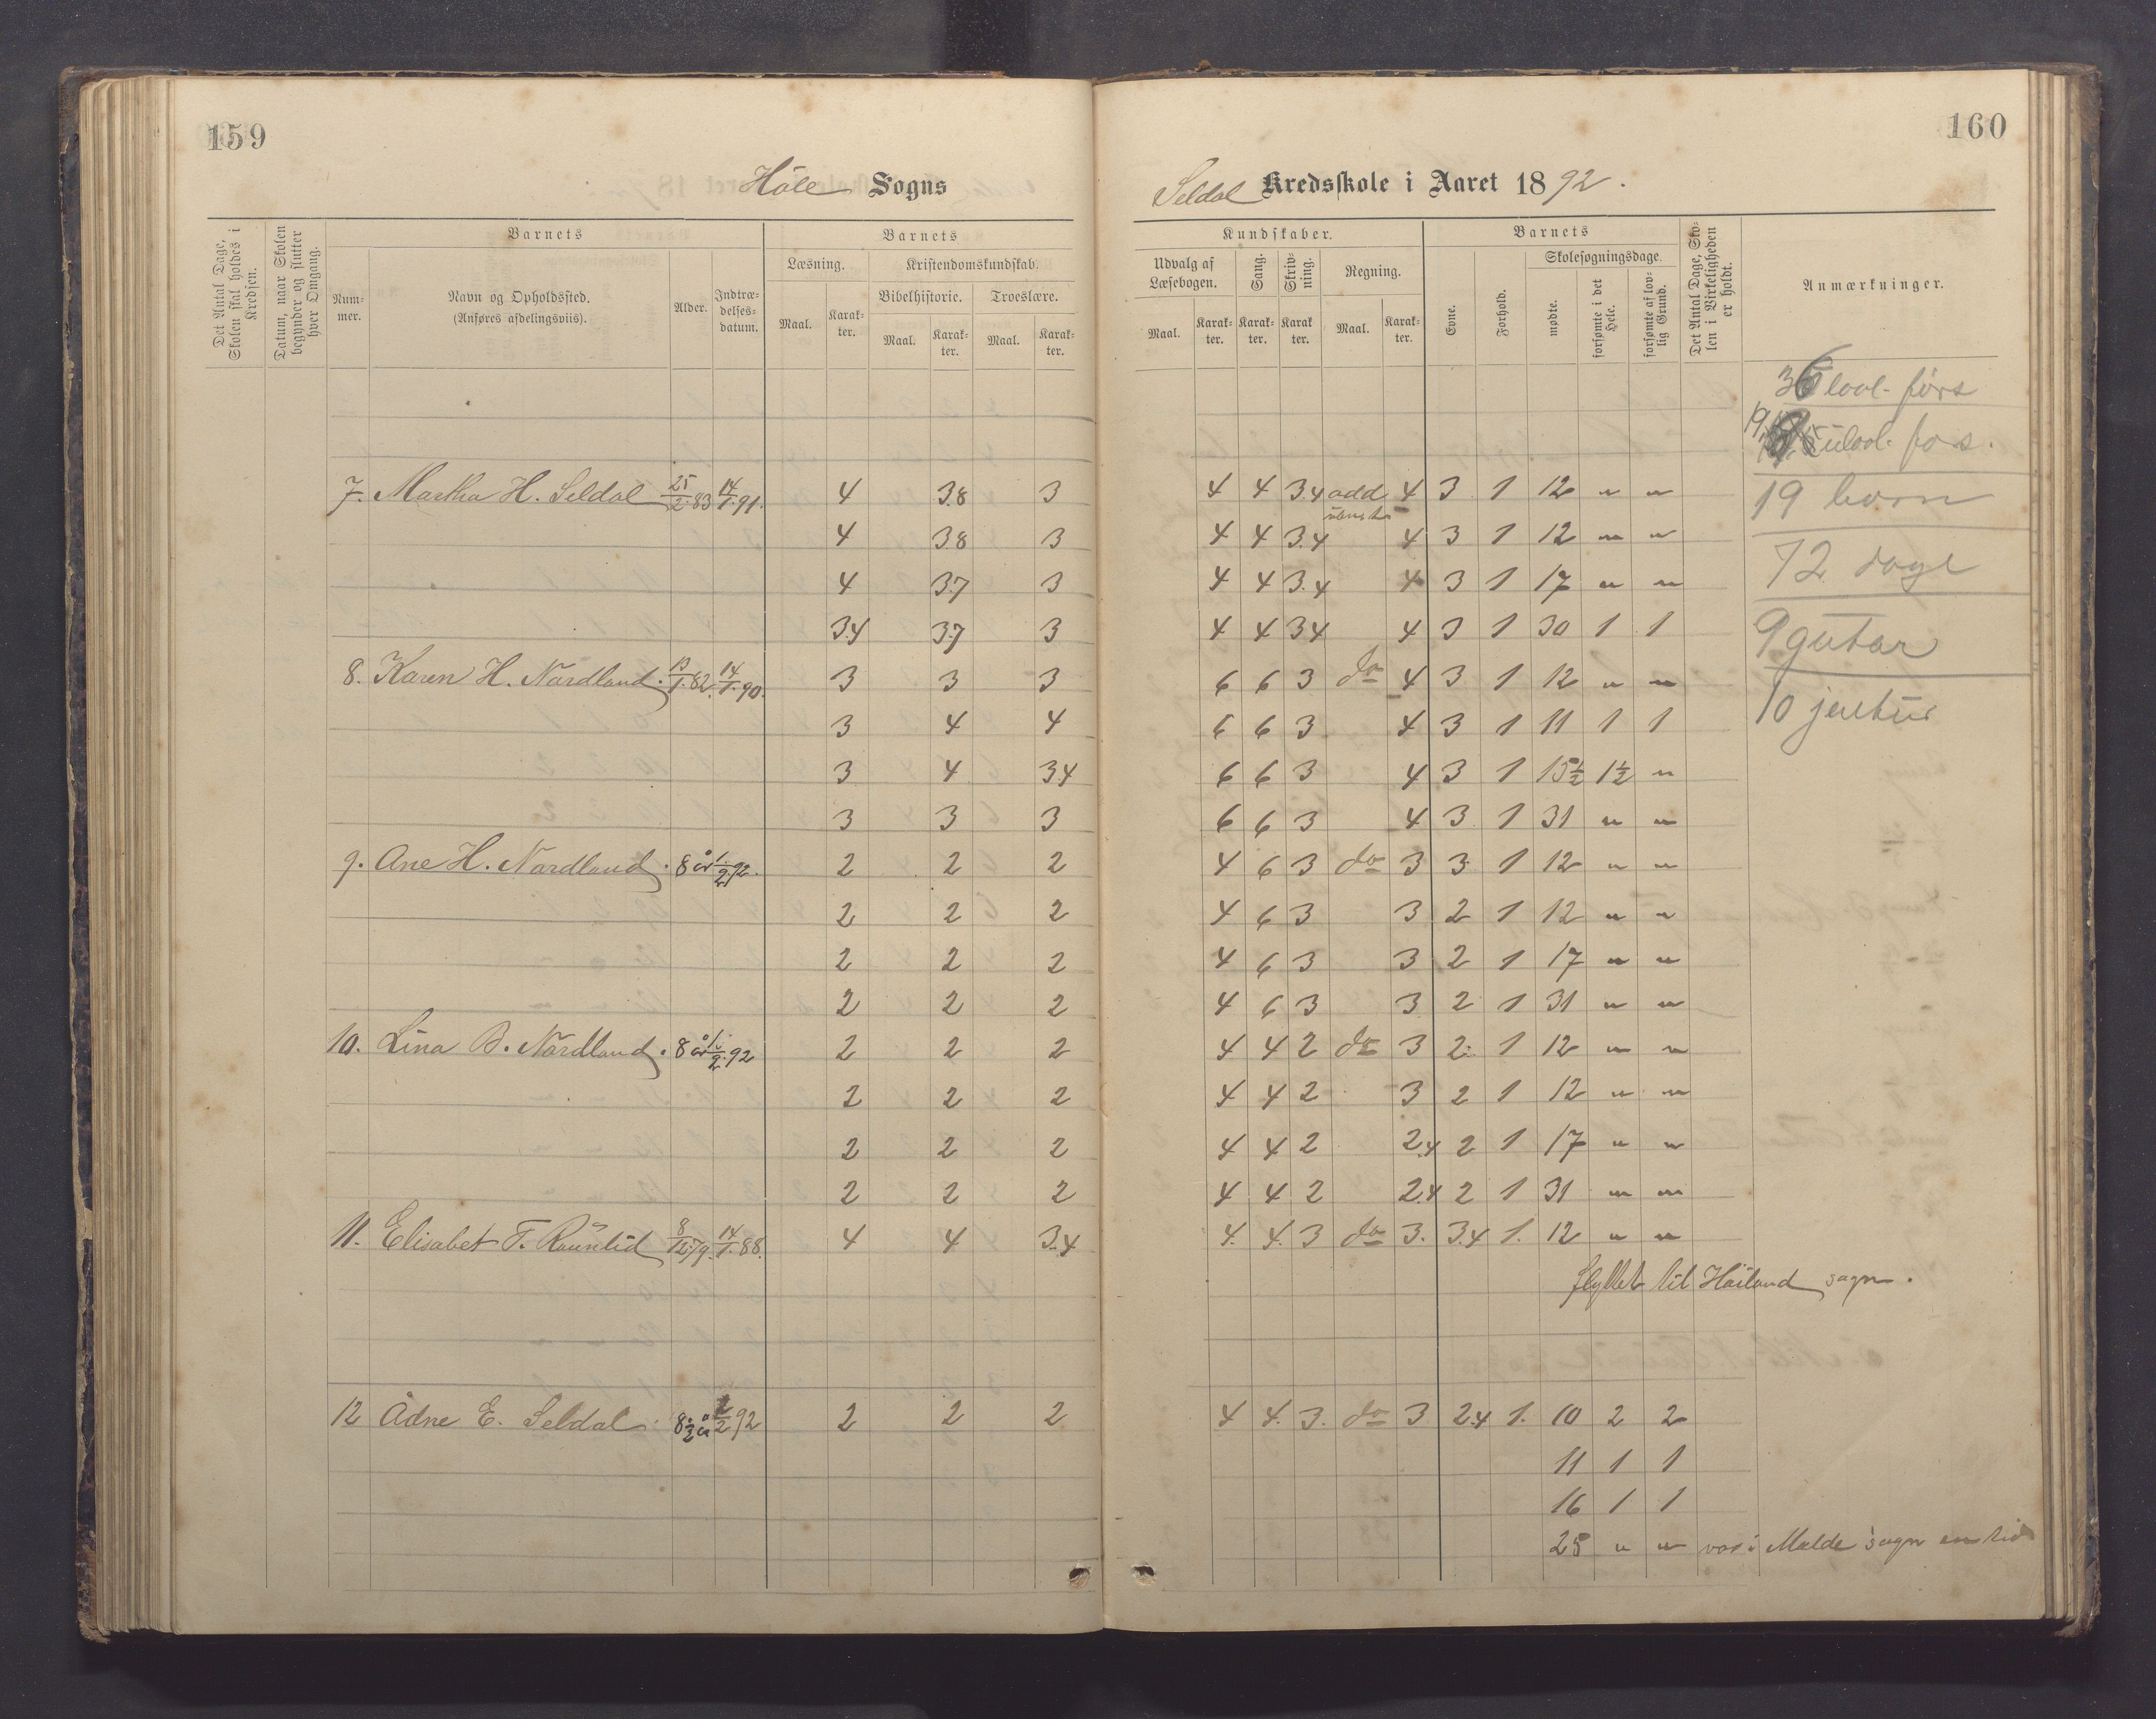 159
160
Höle Sogns
Seldal Kredsskole i Aaret 1892.
Det Antal Dage, Skolen skal holdes i Kredsen.
Datum, naar Skolen begynder og slutter hver Omgang.
Barnets
Barnets
Kundskaber.
Barnets
Nummer.
Navn og Opholdssted.
(Anføres afdelingsviis).
Alder.
Indtrædelsesdatum.
Læsning.
Kristendomskundskab.
Bibelhistorie.
Troeslære.
Maal.
Karakter.
Maal.
Karakter.
Maal.
Karakter.
Udvalg af Læsebogen.
Sang.
Skrivning.
Regning.
Maal.
Karakter.
Karakter.
Karakter.
Maal.
Karakter.
Evne.
Forhold.
Skolesøgningsdage.
mødte.
forsømte i det Hele.
forsømte af lovlig Grund.
Det Antal Dage, Skolen i Virkeligheden er holdt.
Anmærkninger.
36 lovl. förs
19 ulovl. fors.
19 born
72 dage
9 gutar
10 jentur
7. Martha H. Seldal 25/2.83 14/1.91. 4 3.8 3 4 4 3.4 add 4 3 1 12 " "
4 3.8 3 4 4 3.4 4 3 1 12 " "
4 3.7 3 4 4 3.4 4 3 1 17 " "
3.4 3.7 3 4 4 3.4 4 3 1 30 1 1
8. Karen H. Nordland. 13/1.82. 14/1.90. 3 3 3 6 6 3 do 4 3 1 12 " "
3 4 4 6 6 3 4 3 1 11 1 1
3 4 3.4 6 6 3 4 3 1 15½ 1½ "
3 3 3 6 6 3 4 3 1 31 " "
9. Ane H. Nordland. 8 år 1/2.92. 2 2 2 4 6 3 do 3 3 1 12 " "
2 2 2 4 6 3 3 2 1 12 " "
2 2 2 4 6 3 3 2 1 17 " "
2 2 2 4 6 3 3 2 1 31 " "
10. Lina B. Nordland. 8 år 1/2.92 2 2 2 4 4 2 do 3 2 1 12 " "
2 2 2 4 4 2 3 2 1 12 " "
2 2 2 4 4 2 2.4 2 1 17 " "
2 2 2 4 4 2 2.4 2 1 31 " "
11. Elisabet T. Raunlid 8/12.79. 14/1.88. 4 4 3.4 4. 4. 3 do 3. 3.4 1. 12 " "
flyttet til Höiland sogn.
12 Ådne E. Seldal 8½ år 1/2 92 2 2 2 4 4. 3. do 3 2.4 1. 10 2 2
11 1 1
16 1 1
25 " " var i Malde sogn en tid